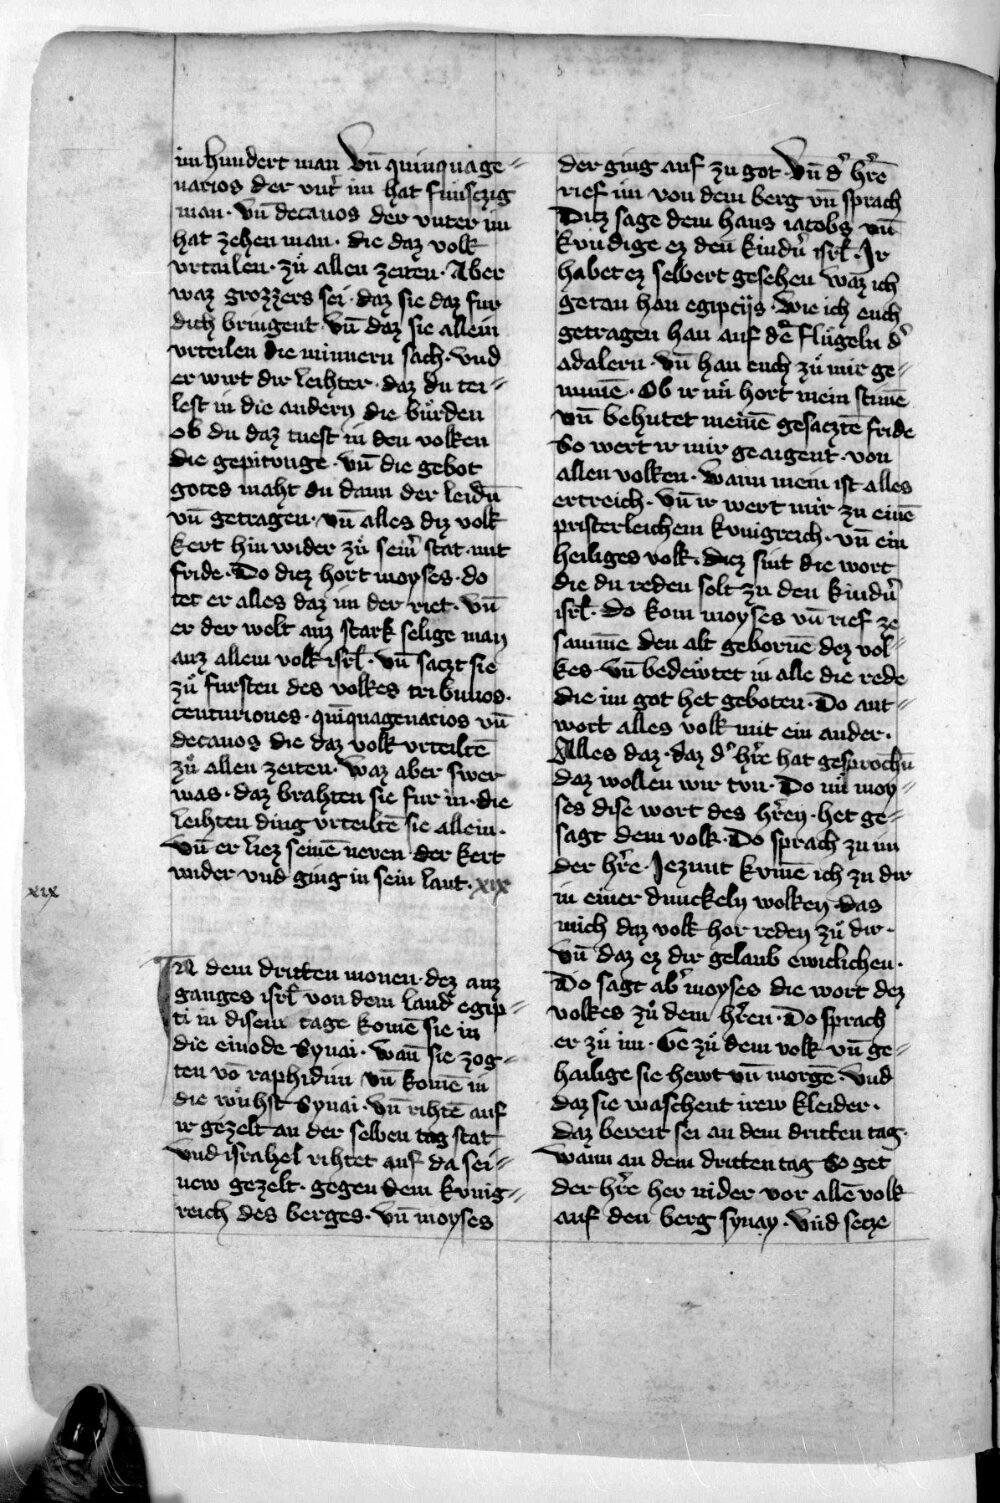 im hundert man Vn̄ quinquage⸗
narios der vnt͛ im hat funfczig
man · vn̄ decanos der vnter im
hat zehen man · die daz volk
vrtailen · zů allen zeiten · Aber
waz grozzers sei · daz sie daz fur
dich bringent · vn̄ daz sie allein
vrteilen die minnern sach · vnd
er wirt dir leihter · daz du tei⸗
lest in die andern die bůrden
ob du daz tuest in den volken
die gepitvnge · vn̄ die gebot
gotes maht du dann der leidn̄
vn̄ getragen · vn̄ alles diz volk
kert hin wider zů sein͛ stat · mit
fride · Do diez hort moyses · do
tet er alles daz im der riet · vn̄
er der welt auz stark selige man
auz allem volk isrl̄ · vn̄ saczt sie
zů fursten des volkes tribunos ·
centuriones · quīquagenarios vn̄
decanos die daz volk vrteiltē
zů allen zeiten · waz aber swer
was · daz brahten sie fur in · die
leihten ding vrteiltē sie allein ·
vn̄ er liez seinē neven der kert
wider vnd ging in sein lant · xix
xix
In dem dritten monen · dez auz
ganges isrl̄ von dem land egip⸗
ti in disem tage komē sie in
die einode Synai · wan̄ sie zog⸗
ten vō raphidim vn̄ komē in
die wůhst Synai · vn̄ rihtē auf
ir gezelt an der selben tag stat
vnd israhel rihtet auf da sei⸗
new gezelt · gegen dem kvnig⸗
reich des berges · vn̄ moyses
der ging auf zu got · Vn̄ d͛ hr̄e
rief im von dem berg vn̄ sprach
Ditz sage dem haus iacobs vn̄
kvndige ez den kindn̄ isrl̄ · Ir
habet ez selbert gesehen waz ich
getan han egipciis · wie ich euch
getragen han auf dē flůgeln d͛
adalern · vn̄ han euch zů mir ge⸗
numē · Ob ir nů hort mein stimē
vn̄ behutet meinē gesacztē fride
So wert ir mir geaigent · von
allen volken · wann mein ist alles
ertreich · vn̄ ir wert mir zu einē
pristerleichem kvnigreich · vn̄ ein
heiliges volk · diez sint die wort
die du reden solt zu den kindn̄
isrl̄ · do kom moyses vn̄ rief ze
samme den alt gebornē dez vol⸗
kes vn̄ bedewtet in alle die rede
die im got het geboten · Do ant⸗
wort alles volk mit ein ander ·
Alles daz · daz d͛ hr̄e hat gesprochn̄
daz wollen wir tvn · Do nů moy⸗
ses dise wort des hr̄en · het ge⸗
sagt dem volk · Do sprach zu im
der hr̄e · Jezunt kvmē ich zu dir
in einer dunckeln wolken · das
mich daz volk hor reden zů dir ·
vn̄ daz ez dir gelaub ewiclichen ·
Do sagt ab͛ moyses die wort dez
volkes zů dem hr̄en · Do sprach
er zů im · Ge zů dem volk vn̄ ge⸗
hailige sie hewt vn̄ morgē · vnd
daz sie waschent irew kleider ·
daz bereit sei an dem dritten tag ·
wann an dem dritten tag So get
der hr̄e her nider vor allē volk
auf den berg synay · vnd setze